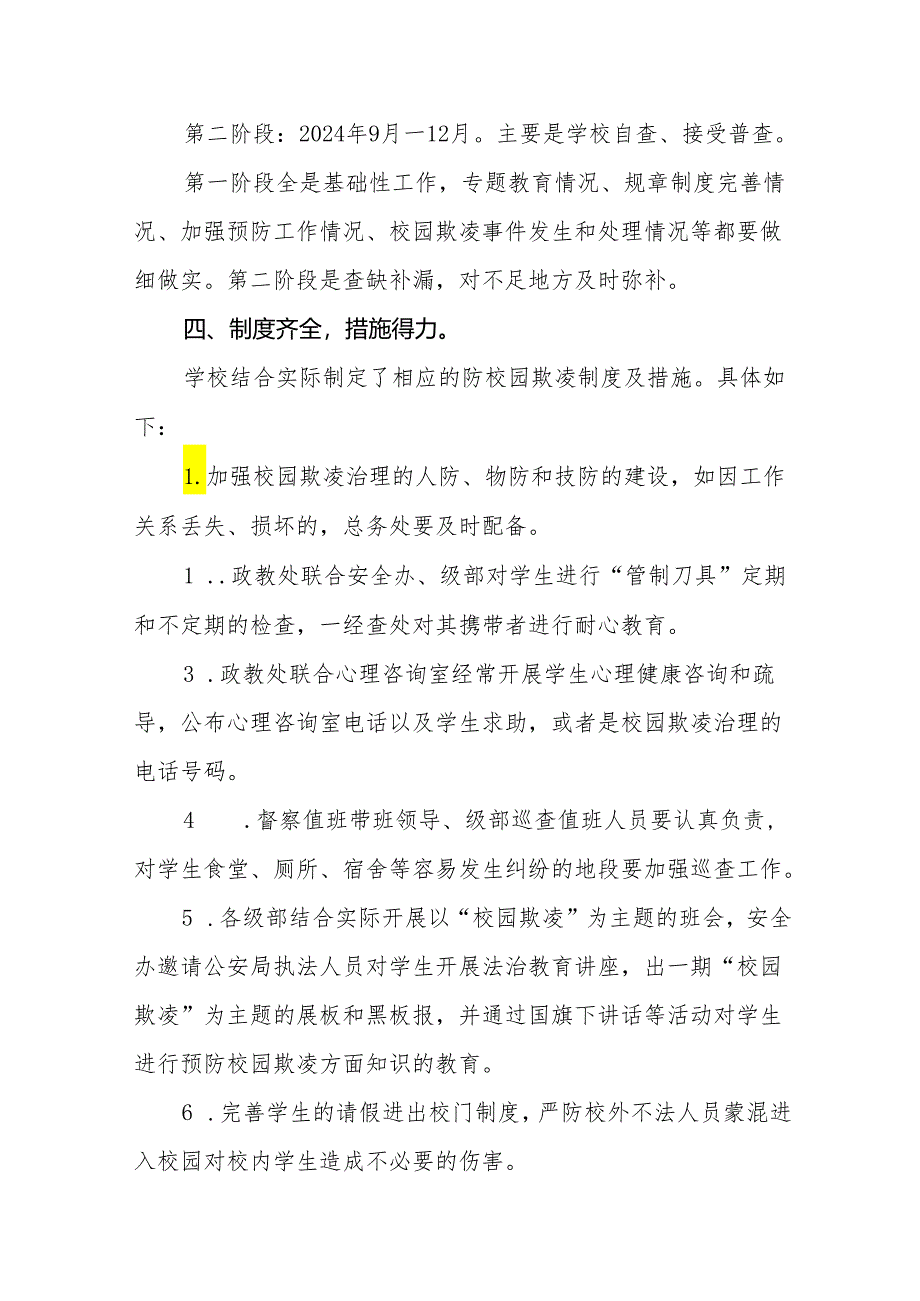 第二阶段：2024年9月一12月。主要是学校自查、接受普查。
第一阶段全是基础性工作，专题教育情况、规章制度完善情
况、加强预防工作情况、校园欺凌事件发生和处理情况等都要做
细做实。第二阶段是查缺补漏，对不足地方及时弥补。
四、制度齐全，措施得力。
学校结合实际制定了相应的防校园欺凌制度及措施。具体如
下：
1.加强校园欺凌治理的人防、物防和技防的建设，如因工作
关系丢失、损坏的，总务处要及时配备。
1 ..政教处联合安全办、级部对学生进行“管制刀具”定期
和不定期的检查，一经查处对其携带者进行耐心教育。
3 .政教处联合心理咨询室经常开展学生心理健康咨询和疏
导，公布心理咨询室电话以及学生求助，或者是校园欺凌治理的
电话号码。
4 .督察值班带班领导、级部巡查值班人员要认真负责，
对学生食堂、厕所、宿舍等容易发生纠纷的地段要加强巡查工作。
5 .各级部结合实际开展以“校园欺凌”为主题的班会，安全
办邀请公安局执法人员对学生开展法治教育讲座，出一期“校园
欺凌”为主题的展板和黑板报，并通过国旗下讲话等活动对学生
进行预防校园欺凌方面知识的教育。
6 .完善学生的请假进出校门制度，严防校外不法人员蒙混进
入校园对校内学生造成不必要的伤害。